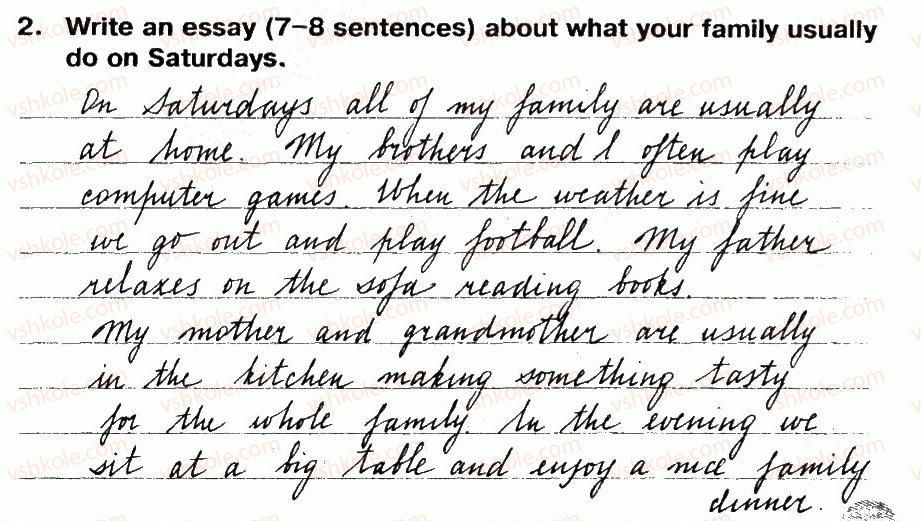 2. Write an essay (7–8 sentences) about what your family usually
do on Saturdays.
On Saturdays all of my family are usually
at home. My brothers and I often play
computer games. When the weather is fine
we go out and play football. My father
relaxes on the sofa reading books.
My mother and grandmother are usually
in the kitchen making something tasty
for the whole family. In the evening we
sit at a big table and enjoy a nice family
dinner.